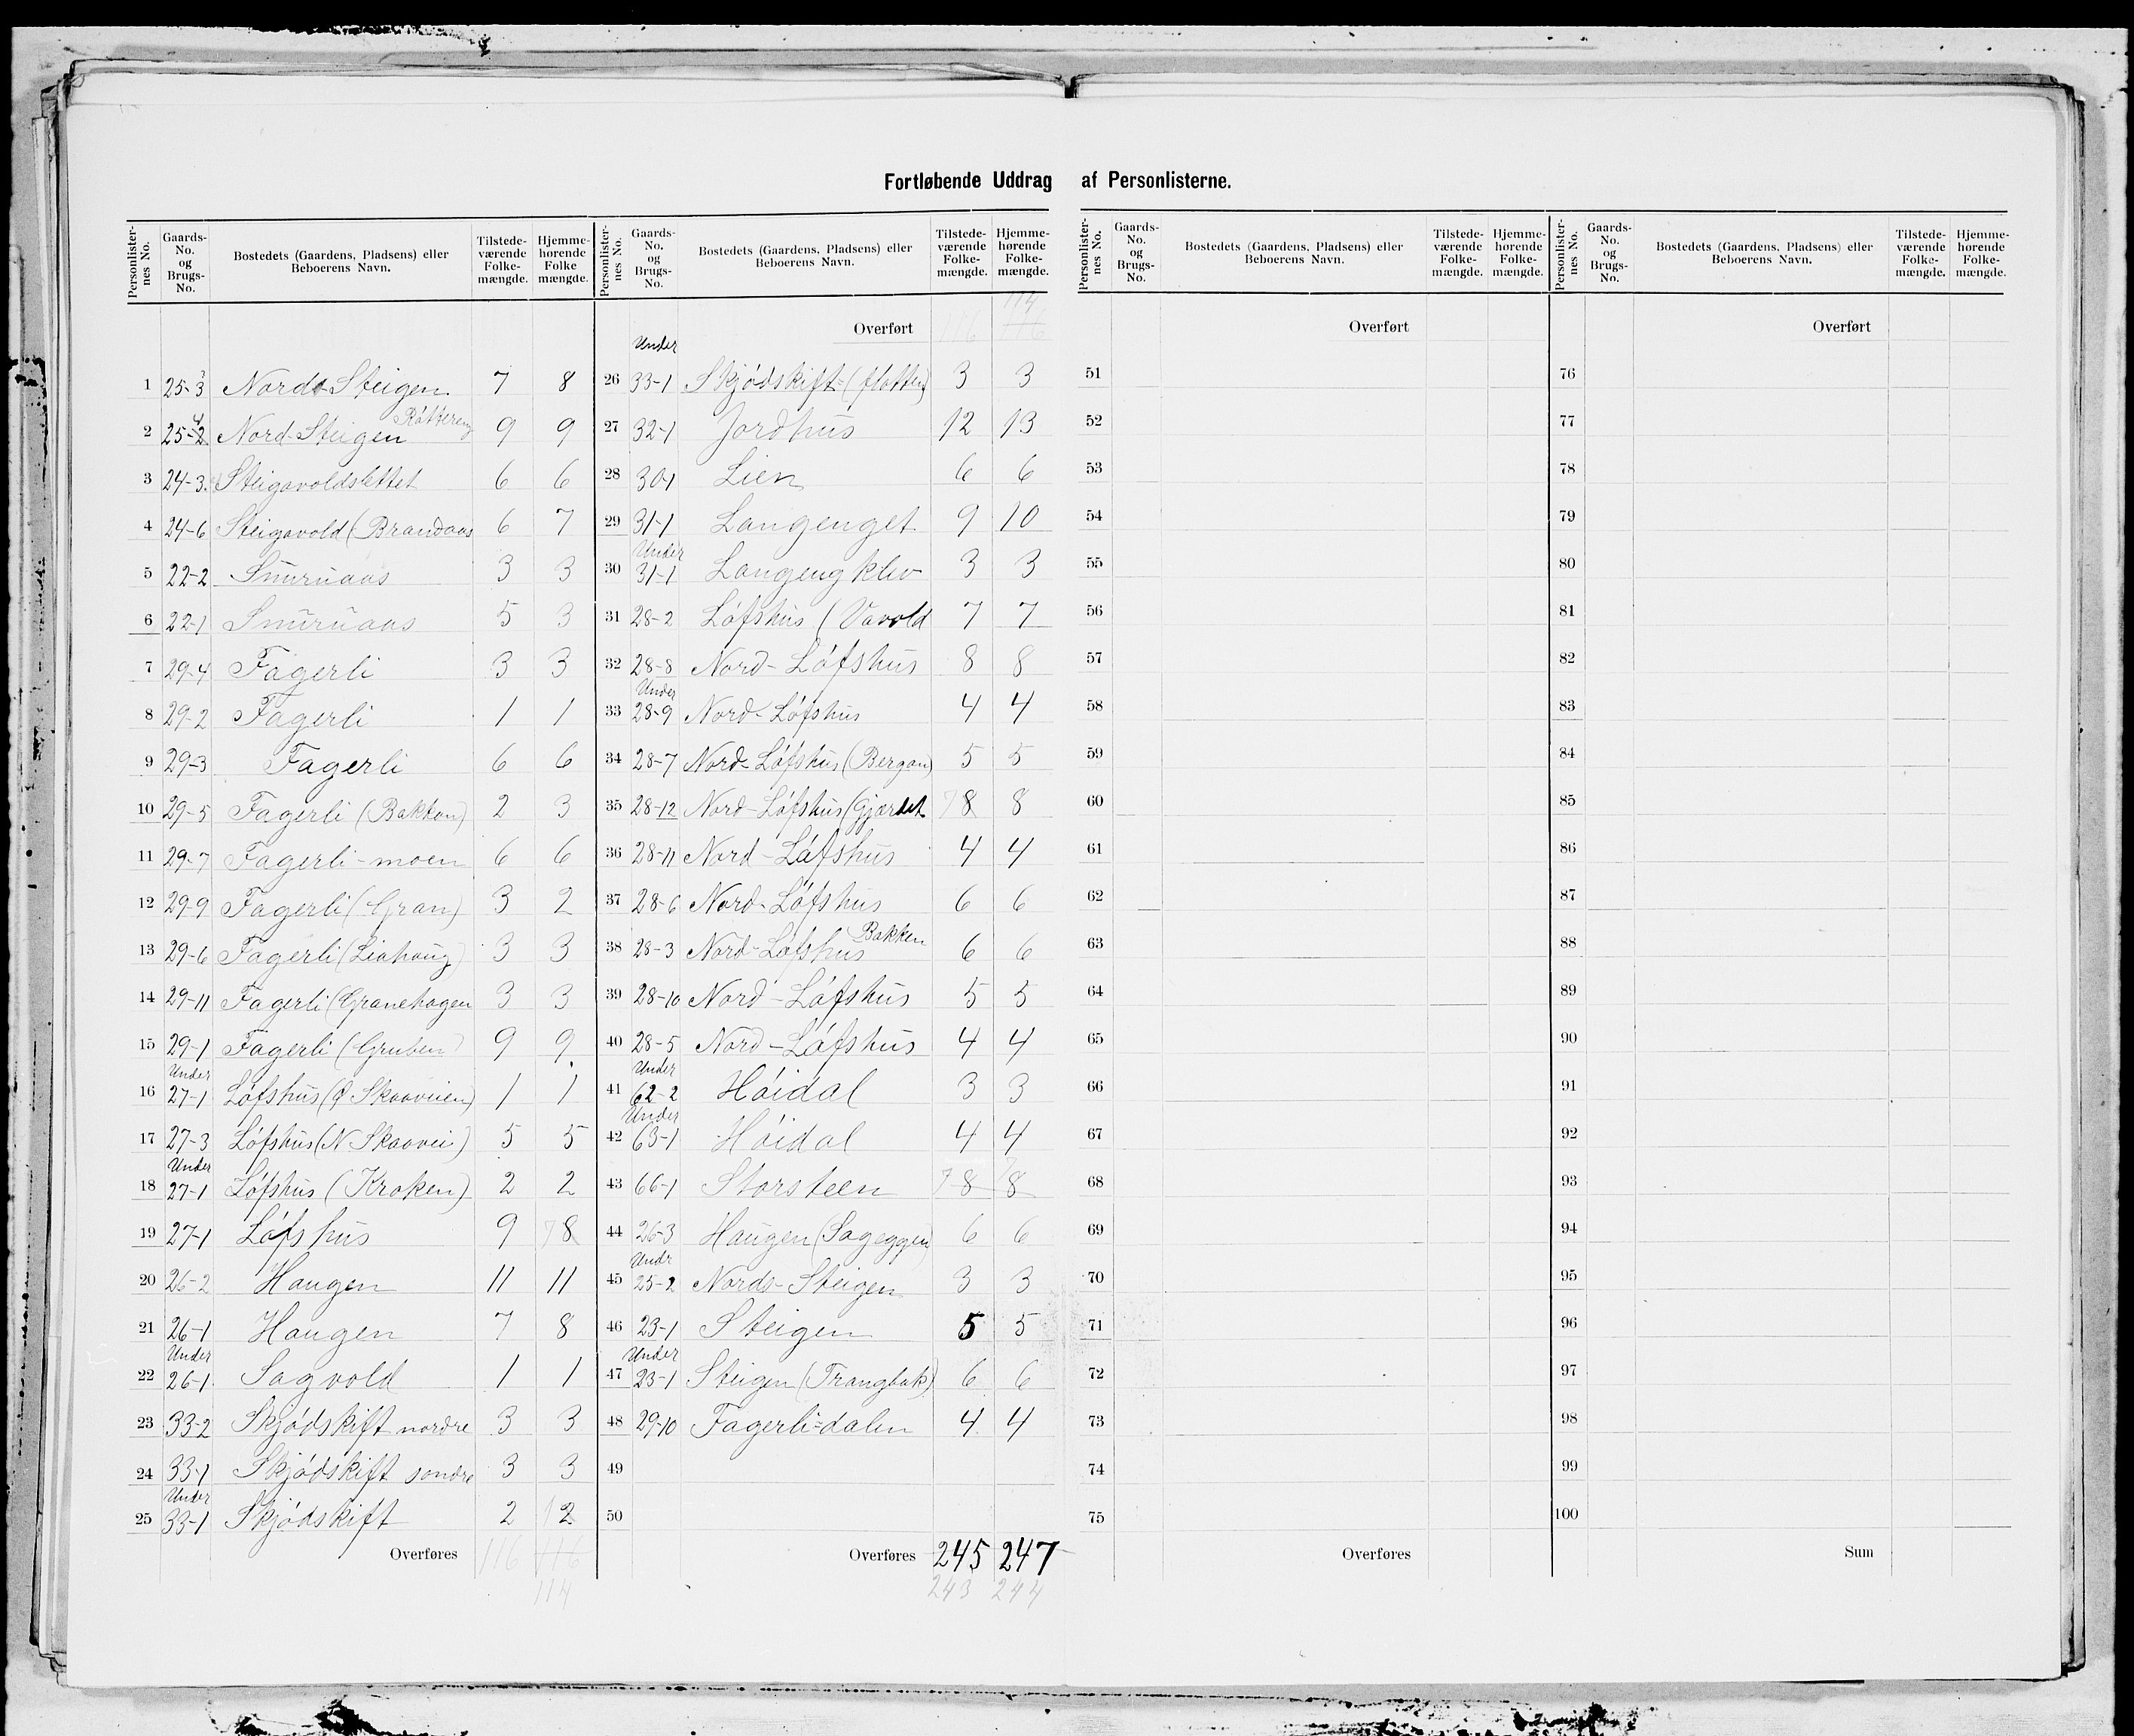 Fortløbende Uddrag af Personlisterne.
Personlister-nes No. | Gaards-No. og Brugs-No. | Bostedets (Gaardens, Pladsens) eller Beboerens Navn. | Tilstede-værende Folke-mængde. | Hjemme-hørende Folke mængde.
1 25-3 Nord-Steigen 7 8
2 25-4 Nord-Steigen Råttereng 9 9
3 24-3 Steigavoldslettet 6 6
4 24-6 Steigavold (Brandaas 6 7
5 22-2 Smuruaas 3 3
6 22-1 Smuruaas 5 3
7 29-4 Fagerli 3 3
8 29-2 Fagerli 1 1
9 29-3 Fagerli 6 6
10 29-5 Fagerli (Bakken) 2 3
11 29-7 Fagerli-moen 6 6
12 29-9 Fagerli (Gran) 3 2
13 29-6 Fagerli (Liahaug) 3 3
14 29-11 Fagerli (Granehagen 3 3
15 29-1 Fagerli (Gruben) 9 9
16 Under 27-1 Løfshus (Ø Skaaveien) 1 1
17 27-3 Løfshus (N Skaavei) 5 5
18 Under 27-1 Løfshus (Kroken) 2 2
19 27-1 Løfshus 9 7 8
20 26-2 Haugen 11 11
21 26-1 Haugen 7 8
22 Under 26-1 Sagvold 1 1
23 33-2 Skjødskift nordre 3 3
24 33-1 Skjødskift søndre 3 3
25 Under 33-1 Skjødskift 2 1 2
Overføres 116 116
114
Personlister-nes No. | Gaards-No. og Brugs-No. | Bostedets (Gaardens, Pladsens) eller Beboerens Navn. | Tilstede-værende Folke-mængde. | Hjemme-hørende Folke-mængde.
114
Overført 116 116
26 Under 33-1 Skjødskift (flotten) 3 3
27 32-1 Jordhus 12 13
28 30-1 Lien 6 6
29 31-1 Langenget 9 10
30 Under 31-1 Langengklev 3 3
31 28-2 Løfshus (Vavold 7 7
32 28-8 Nord-Løfshus 8 8
33 Under 28-9 Nord-Løfshus 4 4
34 28-7 Nord-Løfshus (Bergan) 5 5
35 28-12 Nord-Løfshus (Gjærdet 7 8 8
36 28-11 Nord-Løfshus 4 4
37 28-6 Nord-Løfshus 6 6
38 28-3 Nord-Løfshus Bakken 6 6
39 28-10 Nord-Løfshus 5 5
40 28-5 Nord-Løfshus 4 4
41 Under 62-2 Høidal 3 3
42 Under 63-1 Høidal 4 4
43 66-1 Storsteen 7 8 7 8
44 26-3 Haugen (Sageggen) 6 6
45 Undr 25-2 Nords-Steigen 3 3
46 23-1 Steigen 5 5
47 Under 23-1 Steigen (Trangbak) 6 6
48 29-10 Fagerli-dalen 4 4
49
50
Overføres 245 247
243 244
Personlister-nes No. | Gaards-No. og Brugs-No. | Bostedets (Gaardens, Pladsens) eller Beboerens Navn. | Tilstede-værende Folke-mængde. | Hjemme-hørende Folke-mængde.
Overført
51
52
53
54
55
56
57
58
59
60
61
62
63
64
65
66
67
68
69
70
71
72
73
74
75
Overføres
Personlister-nes No. | Gaards-No. og Brugs-No. | Bostedets (Gaardens, Pladsens) eller Beboerens Navn. | Tilstede-værende Folke-mængde. | Hjemme-hørende Folke-mængde.
Overført
76
77
78
79
80
81
82
83
84
85
86
87
88
89
90
91
92
93
94
95
96
97
98
99
100
Sum